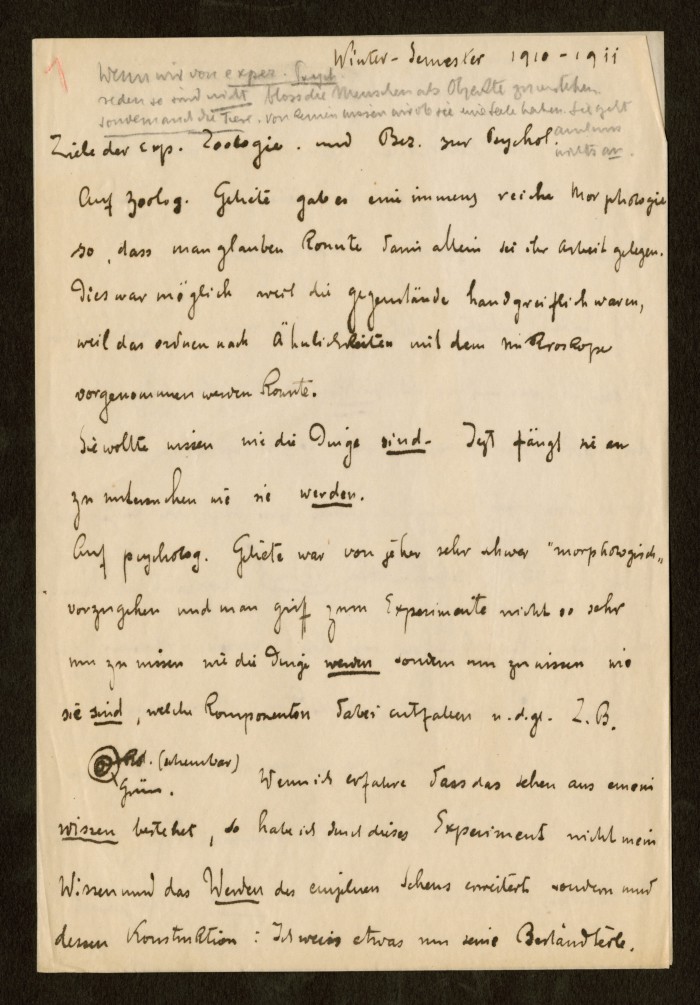 Winter-Semester 1910-1911
1
Wenn wir von exper. Psych.
reden so sind nicht bloss die Menschen als Objekte zu verstehen
sondern auch die Tiere. von keinem wissen wir ob sie eine Seele haben. Sie geht
auch uns
nichts an.
Ziele der exp. Zoologie. und Bez. zur Psychol.
Auf zoolog. Gebiete gab es eine immens reiche Morphologie
so, dass man glauben konnte darin allein sei ihr Arbeit gelegen.
Dies war möglich weil die gegenstände handgreiflich waren,
weil das ordnen nach Ähnlichkeiten mit dem Mikroskope
vorgenommen werden konnte.
Sie wollte wissen wie die Dinge sind. Jetzt fängt sie an
zu untersuchen wie sie werden.
Auf psycholog. Gebiete war von jeher sehr schwer "morphologisch"
vorzugehen und man griff zum Experimente nicht so sehr
um zu wissen wie die Dinge werden sondern um zu wissen wie
sie sind, welche Komponenten dabei entfallen u.d.gl. Z.B.
Rot. (scheinbar)
Grün. Wenn ich erfahre dass das sehen aus einem
wissen bestehet, so habe ich durch dieses Experiment nicht mein
Wissen um das Werden des einzelnen Sehens erweitert sondern um
dessen Konstruktion: Ich weiss etwas um seine Bestandteile.